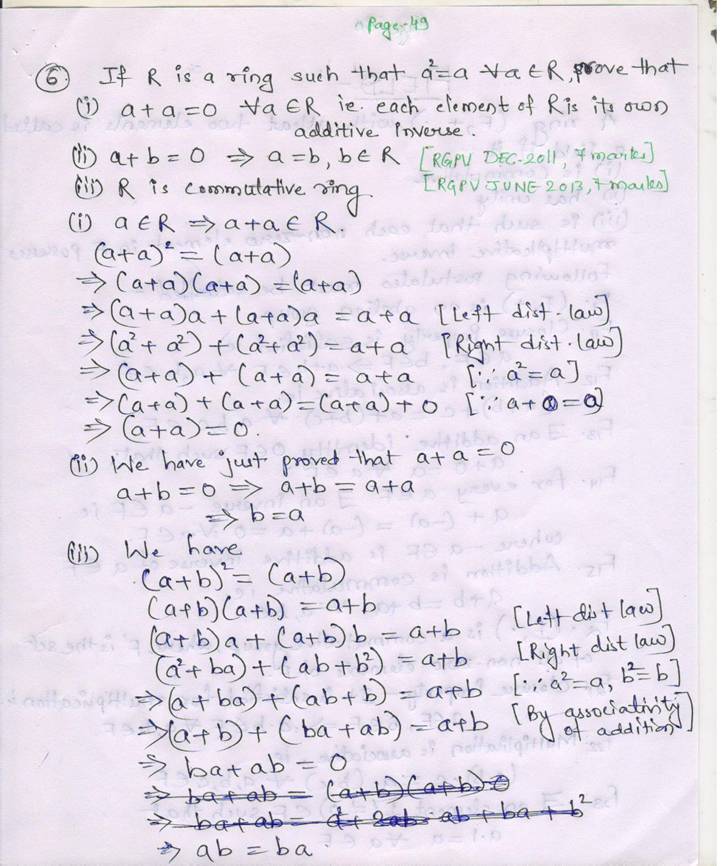 Page-49
⑥ If R is a ring such that a²=a ∀a∈R, prove that
(i) a+a=0 ∀a∈R ie. each element of R is its own
additive inverse.
(ii) a+b=0 ⇒ a=b, b∈R [RGPV DEC-2011, 7 marks]
(iii) R is commutative ring. [RGPV JUNE 2013, 7 marks]
(i) a∈R ⇒ a+a∈R
(a+a)² = (a+a)
⇒ (a+a)(a+a) = (a+a)
⇒ (a+a)a + (a+a)a = a+a [Left dist. law]
⇒ (a²+a²) + (a²+a²) = a+a [Right dist. law]
⇒ (a+a) + (a+a) = a+a [∵ a²=a]
⇒ (a+a) + (a+a) = (a+a) + 0 [∵ a+0=a]
⇒ (a+a) = 0.
(ii) We have just proved that a+a=0
a+b=0 ⇒ a+b = a+a
⇒ b=a
(iii) We have
(a+b)² = (a+b)
(a+b)(a+b) = a+b
(a+b)a + (a+b)b = a+b [Left dist law]
(a²+ba) + (ab+b²) = a+b [Right dist law]
⇒ (a+ba) + (ab+b) = a+b [∵ a²=a, b²=b]
⇒ (a+b) + (ba+ab) = a+b [By associativity of addition]
⇒ ba+ab = 0
⇒ ba+ab = (a+b)(a+b) 0
⇒ ba+ab = a²+2ab ab+ba+b²
⇒ ab = ba.